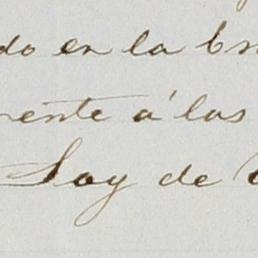 do en la
rente á las
Soy de